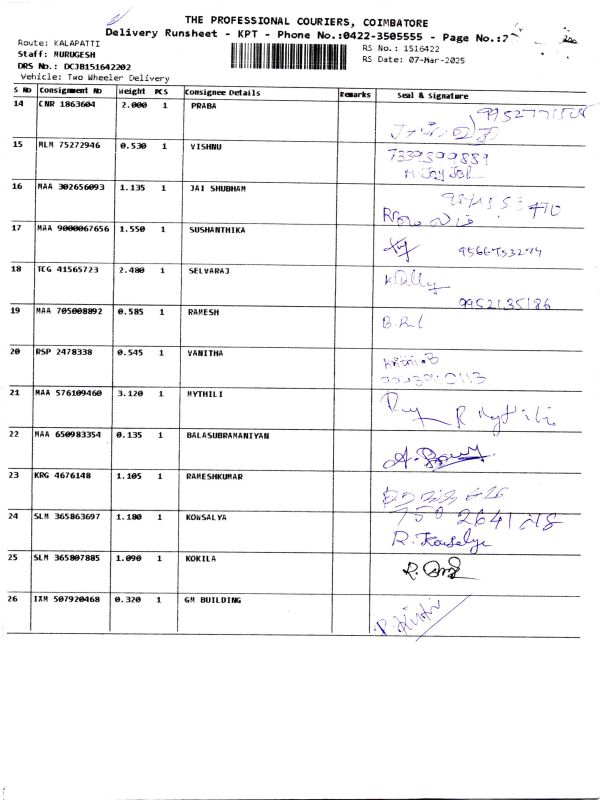 THE PROFESSIONAL COURIERS, COIMBATORE
Delivery Runsheet - KPT - Phone No.:0422-3505555 - Page No.:2
Route: KALAPATTI
RS No.: 1516422
Staff: MURUGESH
RS Date: 07-Mar-2025
DRS No.: DCJB151642202
Vehicle: Two Wheeler Delivery
S No Consignment No Weight PCS Consignee Details Remarks Seal & Signature
14 CNR 1863604 2.000 1 PRABA
15 MLM 75272946 0.530 1 VISHNU
16 MAA 302656093 1.135 1 JAI SHUBHAM
17 MAA 9000067656 1.550 1 SUSHANTHIKA
18 TCG 41565723 2.480 1 SELVARAJ
9952135186
19 MAA 705008892 0.585 1 RAMESH
20 RSP 2478338 0.545 1 VANITHA
21 MAA 576109460 3.120 1 MYTHILI
R Mythili
22 MAA 650983354 0.135 1 BALASUBRAMANIYAN
23 KRG 4676148 1.105 1 RAMESHKUMAR
24 SLM 365863697 1.180 1 KOWSALYA
R. Kowsalya
25 SLM 365807885 1.090 1 KOKILA
26 IXM 507920468 0.320 1 GM BUILDING